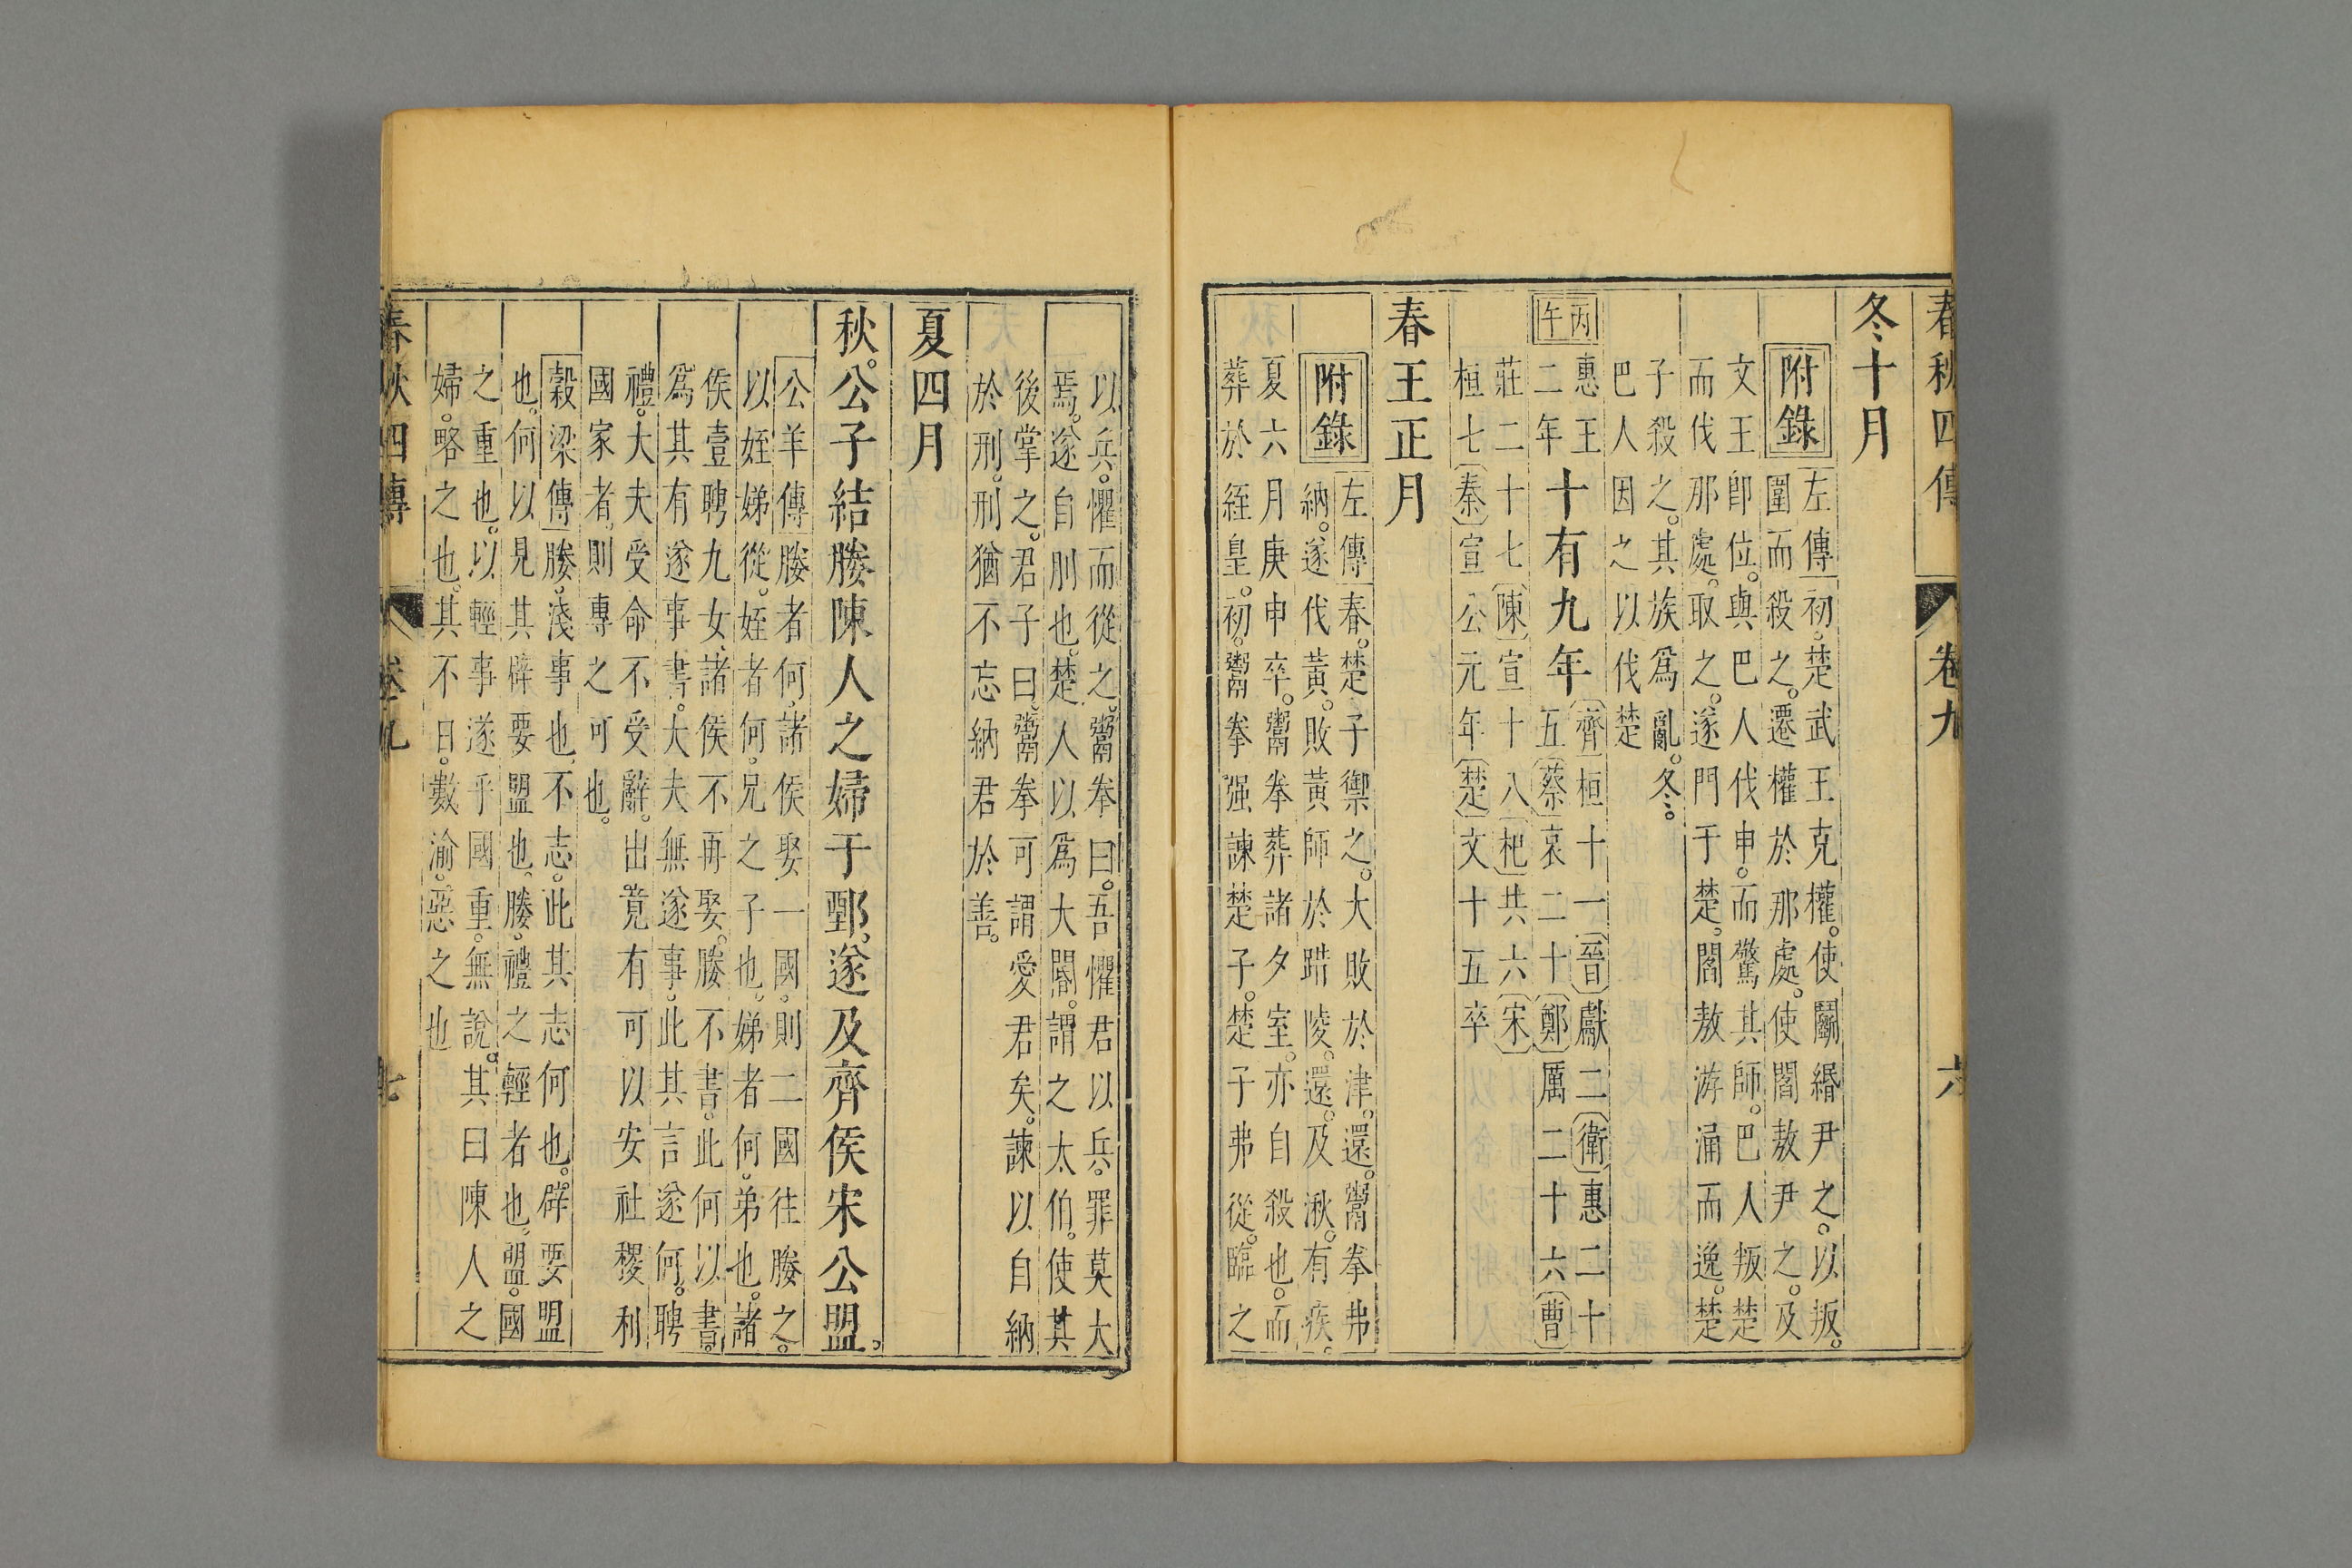 春秋四傳 卷九 六
冬十月
附錄 左傳初。楚武王克權。使鬬緡尹之。以叛。
圍而殺之。遷權於那處。使閻敖尹之。及
文王卽位。與巴人伐申。而驚其師。巴人叛楚
而伐那處。取之。遂門于楚。閻敖游涌而逸。楚
子殺之。其族爲亂。冬。
巴人因之以伐楚
丙午
惠王二年 十有九年 齊桓十一 晉獻二 衛惠二十
五 蔡哀二十 鄭厲二十六 曹
莊二十七 陳宣十八 杞共六 宋
桓七 秦宣公元年 楚文十五卒
春王正月
附錄 左傳春。楚子禦之。大敗於津。還。鬻拳弗
納。遂伐黃。敗黃師於踖陵。還。及湫。有疾。
夏六月庚申卒。鬻拳葬諸夕室。亦自殺也。而
葬於絰皇。初。鬻拳强諫楚子。楚子弗從。臨之
以兵。懼而從之。鬻拳曰。吾懼君以兵。罪莫大
焉。遂自刖也。楚人以爲大閽。謂之太伯。使其
後掌之。君子曰。鬻拳可謂愛君矣。諫以自納
於刑。刑猶不忘納君於善。
夏四月
秋。公子結媵陳人之婦于鄄。遂及齊侯宋公盟。
公羊傳媵者何。諸侯娶一國。則二國往媵之。
以姪娣從。姪者何。兄之子也。娣者何。弟也。諸
侯壹聘九女。諸侯不再娶。媵不書。此何以書。
爲其有遂事書。大夫無遂事。此其言遂何。聘
禮。大夫受命不受辭。出竟有可以安社稷利
國家者。則專之可也。
穀梁傳媵。淺事也。不志。此其志何也。辟要盟
也。何以見其辟要盟也。媵。禮之輕者也。盟。國
之重也。以輕事遂乎國重。無說。其曰陳人之
婦。略之也。其不日。數渝。惡之也
春秋四傳 卷九 七